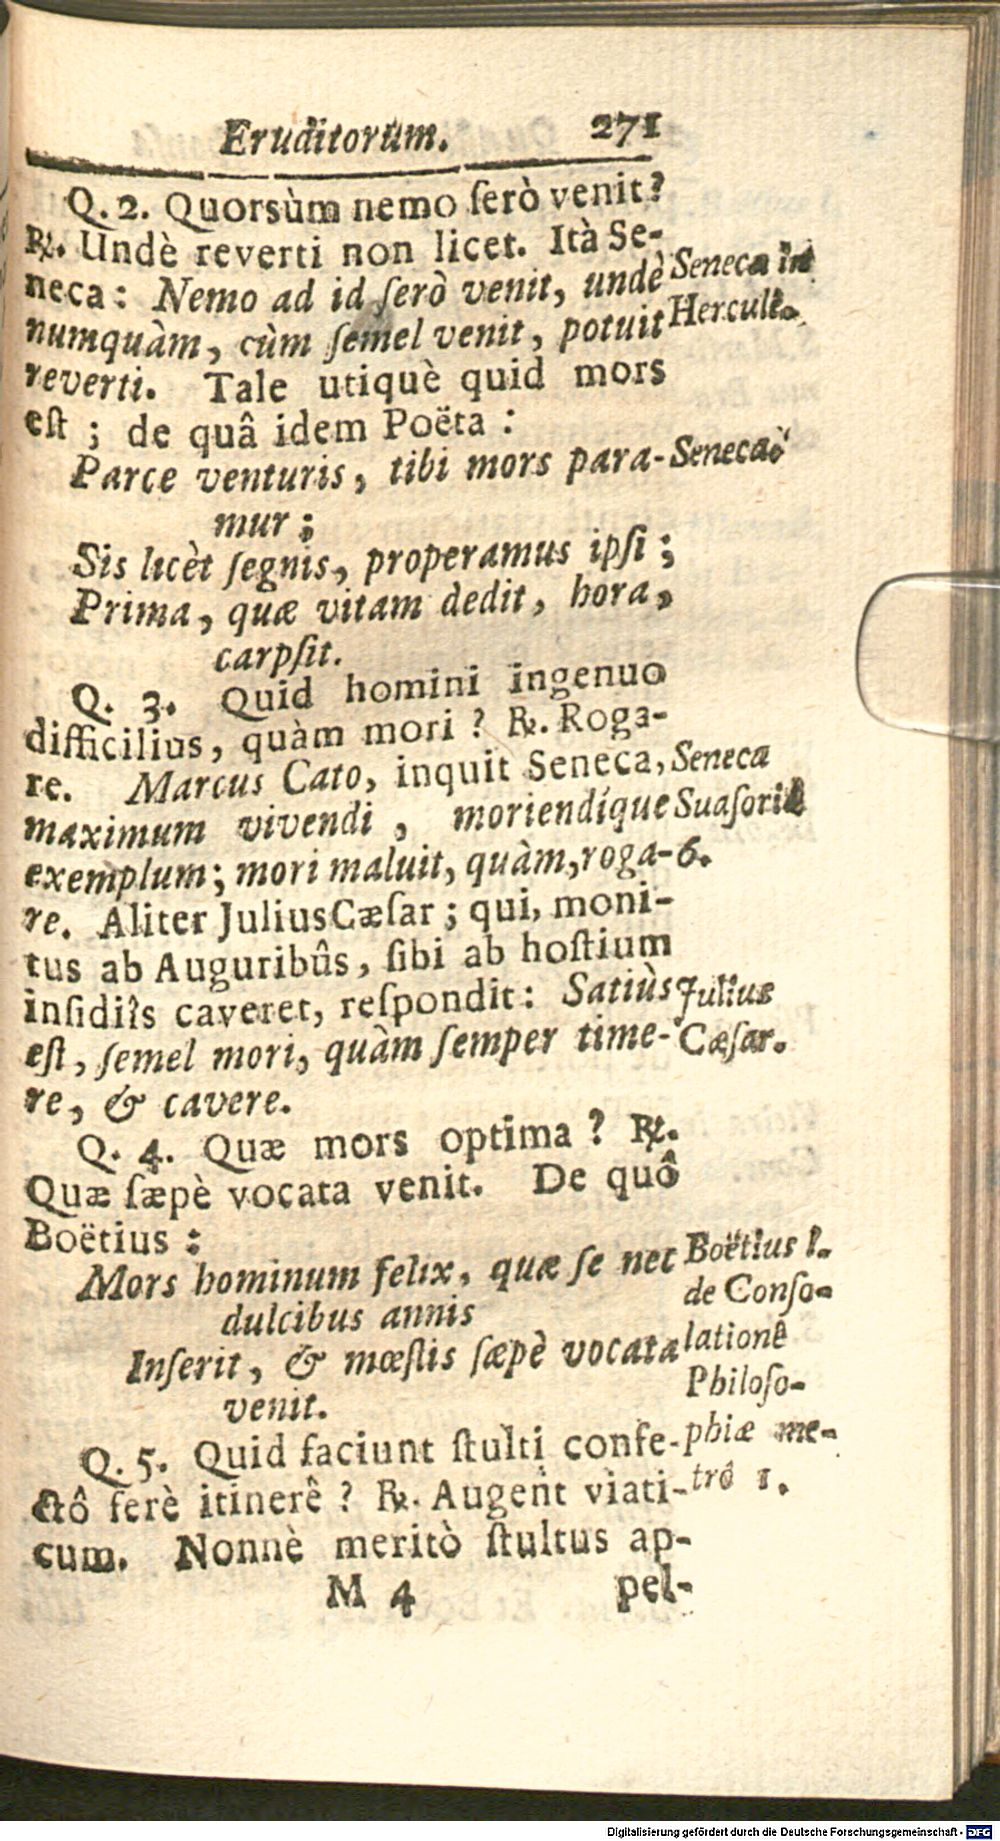 Eruditorum. 271
Q. 2. Quorsùm nemo ſerò venit?
℞. Undè reverti non licet. Ità Se-
neca: Nemo ad id ſerò venit, undè
Seneca in
numquàm, cùm ſemel venit, potuit
Herculê.
reverti. Tale utiquè quid mors
eſt ; de quâ idem Poëta :
Parce venturis, tibi mors para-
Seneca
mur ;
Sis licèt ſegnis, properamus ipſi ;
Prima, quæ vitam dedit, hora,
carpſit.
Q. 3. Quid homini ingenuo
difficilius, quàm mori ? ℞. Roga-
re. Marcus Cato, inquit Seneca,
Seneca
maximum vivendi , moriendíque
Suaſoriâ
exemplum; mori maluit, quàm,roga-
6.
re. Aliter Julius Cæſar ; qui, moni-
tus ab Auguribûs, ſibi ab hoſtium
inſidiîs caveret, reſpondit: Satiùs
Julius
eſt, ſemel mori, quàm ſemper time-
Cæſar.
re, & cavere.
Q. 4. Quæ mors optima ? ℞.
Quæ ſæpè vocata venit. De quô
Boëtius :
Mors hominum felix, quæ ſe nec
Boëtius l.
dulcibus annis
de Conſo-
Inſerit, & mœſtis ſæpè vocata
lationê
venit.
Philoſo-
Q. 5. Quid faciunt ſtulti confe-
phiæ me-
ctô ferè itinerê ? ℞. Augent viati-
trô 1.
cum. Nonnè meritò ſtultus ap-
M 4 pel-
Digitalisierung gefördert durch die Deutsche Forschungsgemeinschaft - DFG